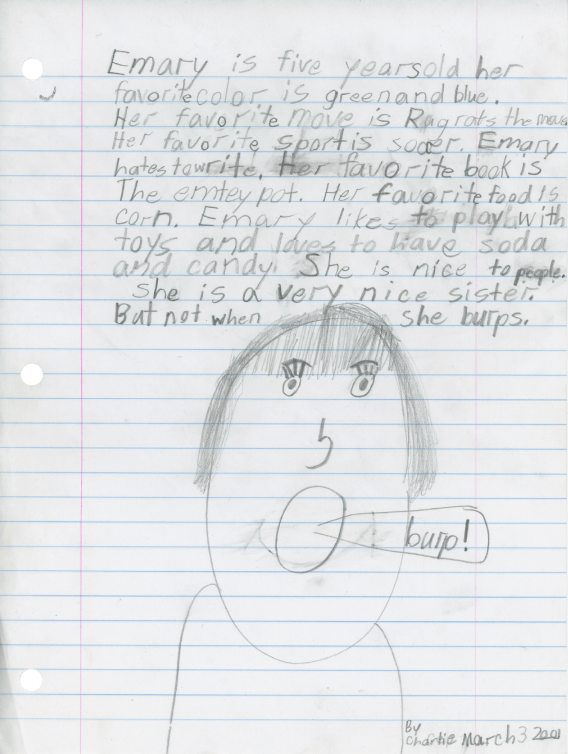 Emary is five yearsold her
favorite color is green and blue.
Her favorite move is Ragrats the move
Her favorite sport is socer. Emary
hates to write. Her favorite book is
The emtey pot. Her favorite food is
corn. Emary likes to play with
toys and loves to have soda
and candy. She is nice to people.
She is a very nice sister.
But not when she burps.
burp!
By
Charlie March 3 2001